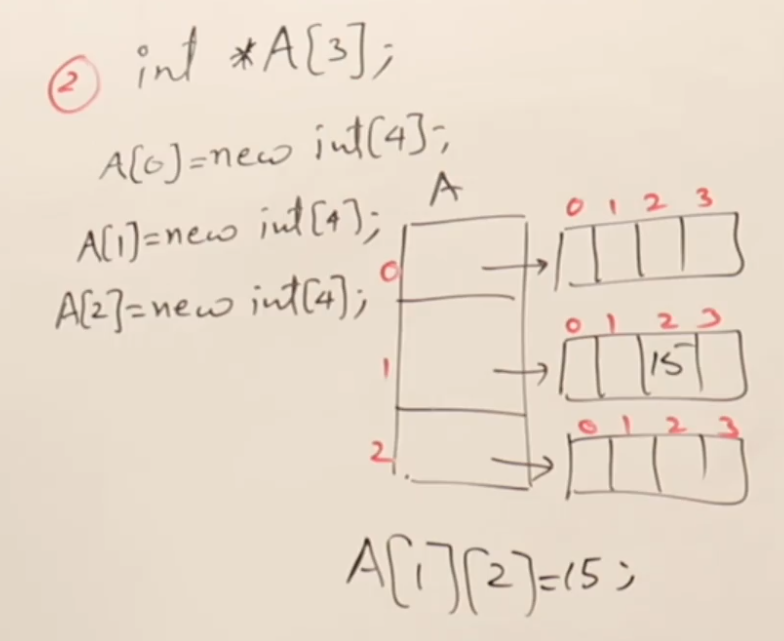 ② int *A[3];
A[0]=new int[4];
A[1]=new int[4];
A[2]=new int[4];
A
0
1
2
0 1 2 3
0 1 2 3
15
0 1 2 3
A[1][2]=15;